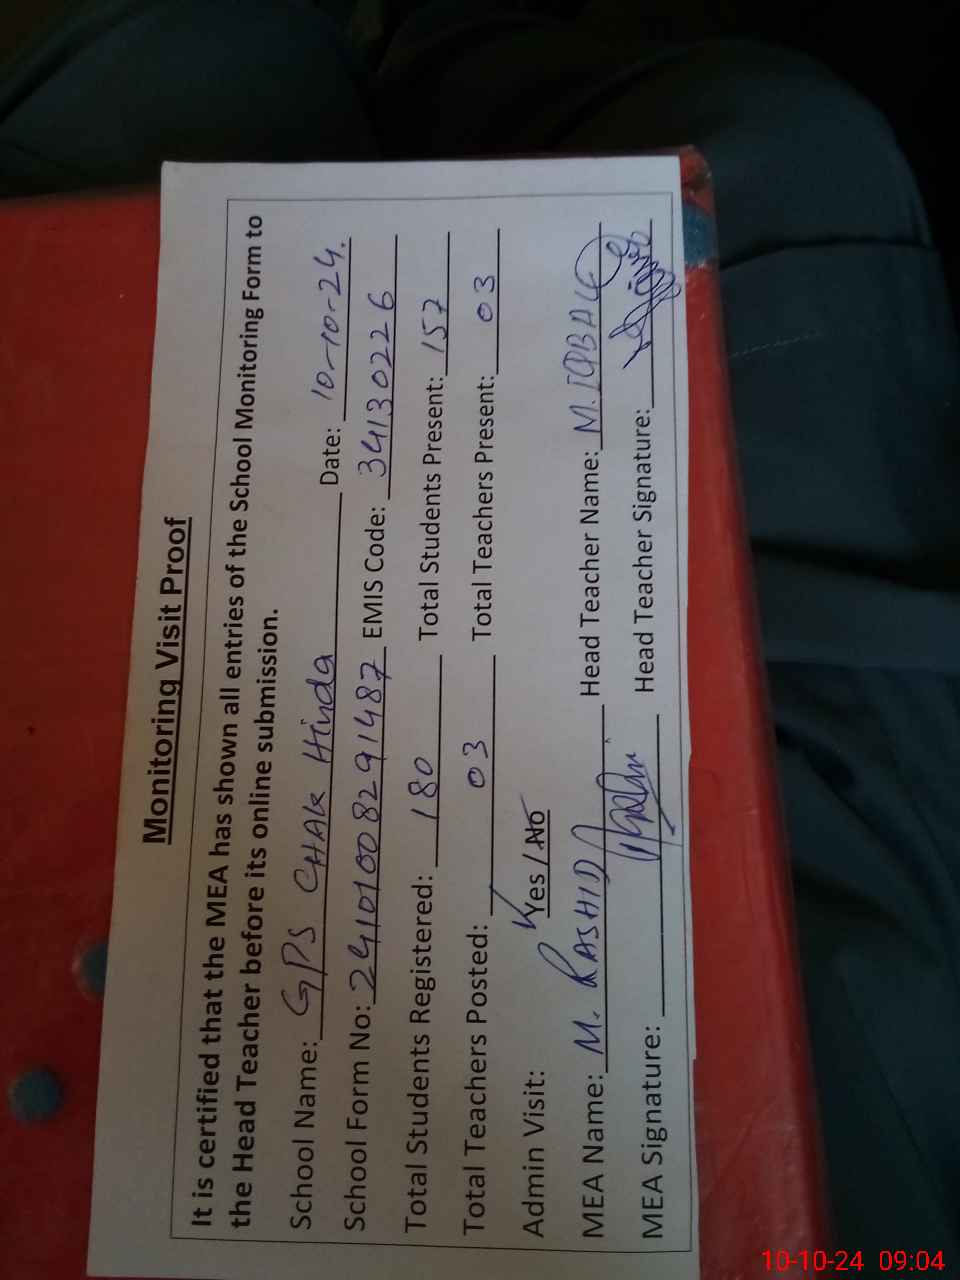 Monitoring Visit Proof
It is certified that the MEA has shown all entries of the School Monitoring Form to
the Head Teacher before its online submission.
School Name: GPS CHAK Hinda Date: 10-10-24.
School Form No: 24101008291487 EMIS Code: 34130226
Total Students Registered: 180 Total Students Present: 157
Total Teachers Posted: 03 Total Teachers Present: 03
Admin Visit: Yes / No
MEA Name: M. RASHID Head Teacher Name: M. IQBAL
MEA Signature: Head Teacher Signature:
10-10-24 09:04